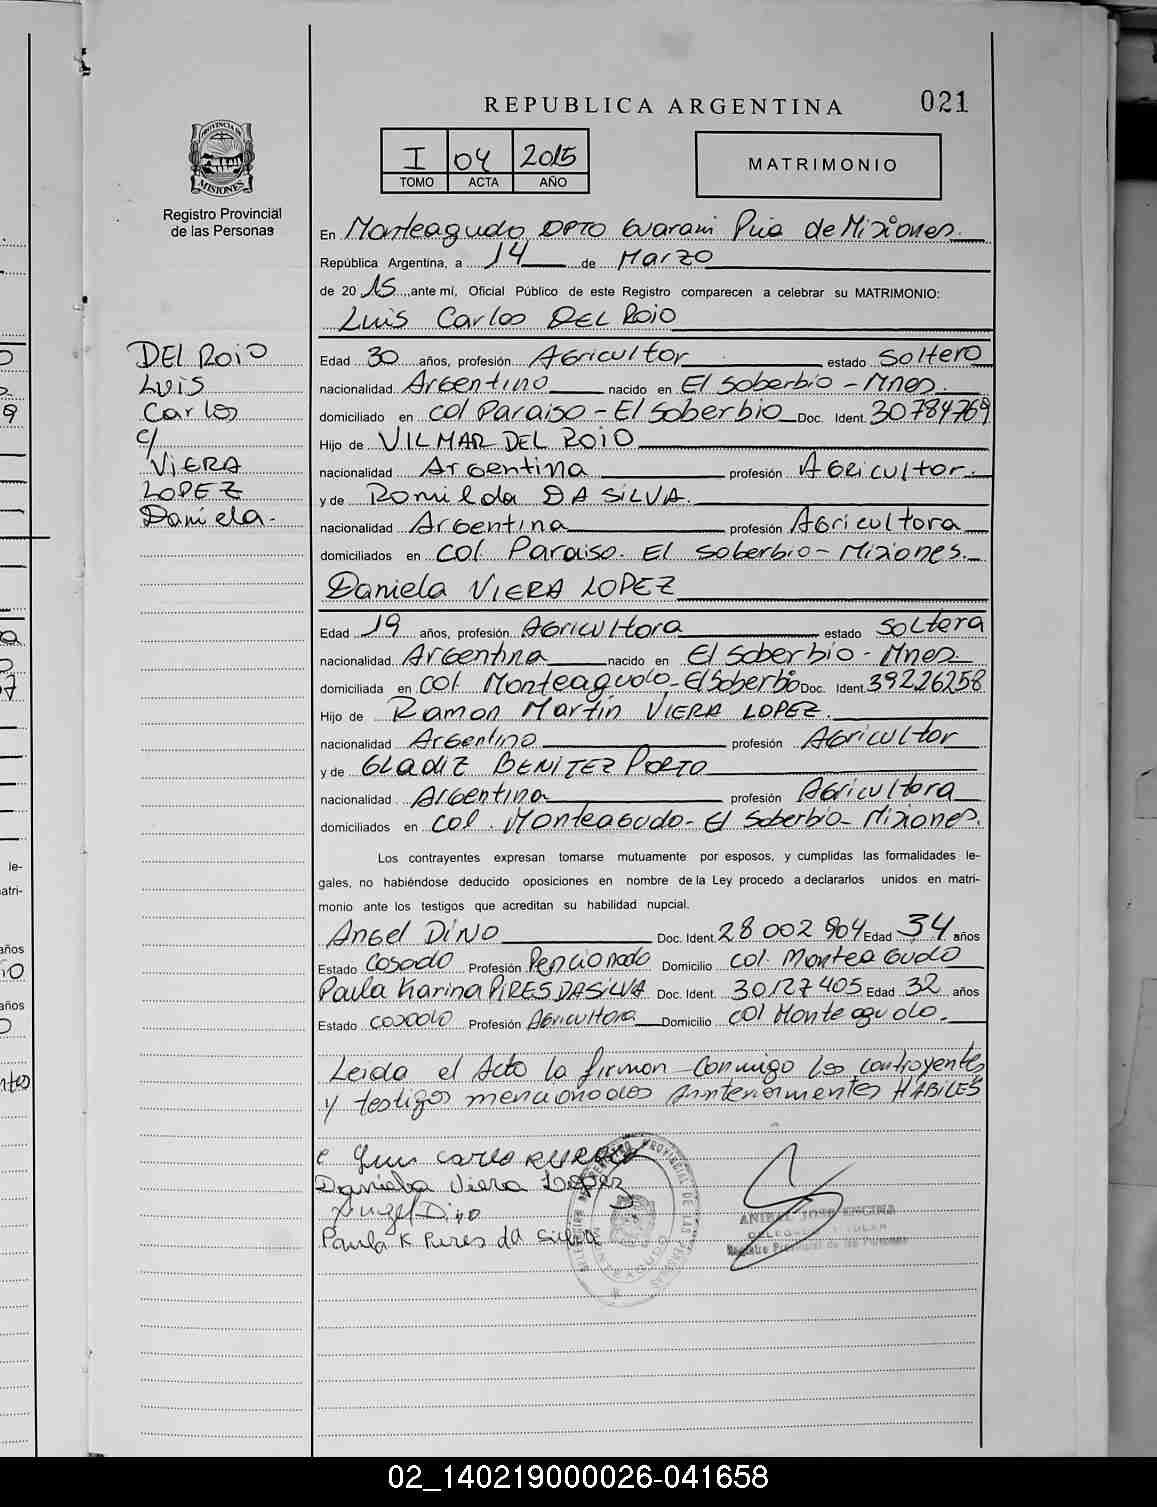 021
REPUBLICA ARGENTINA
I 04 2015
TOMO ACTA AÑO
MATRIMONIO
PROVINCIA DE
MISIONES
Registro Provincial
de las Personas
En Monteagudo DPTO Guarani Pcia de Misiones.
República Argentina, a 14 de Marzo
de 20 15 ante mí, Oficial Público de este Registro comparecen a celebrar su MATRIMONIO:
Luis Carlos DEL ROIO
DEL ROIO
LUIS
Carlos
c/
VIERA
LOPEZ
Daniela.-
Edad 30 años, profesión Agricultor estado Soltero
nacionalidad Argentino nacido en El Soberbio - Mnes.
domiciliado en Col Paraiso - El Soberbio Doc. Ident. 30784769
Hijo de VILMAR DEL ROIO
nacionalidad Argentina profesión Agricultor.
y de Romilda DA SILVA.
nacionalidad Argentina profesión Agricultora
domiciliados en Col Paraiso. El Soberbio - Misiones.
Daniela VIERA LOPEZ
Edad 19 años, profesión Agricultora estado Soltera
nacionalidad Argentina nacido en El Soberbio - Mnes.
domiciliada en Col. Monteagudo - El Soberbio Doc. Ident. 39226258
Hijo de Ramon Martin VIERA LOPEZ.
nacionalidad Argentino profesión Agricultor
y de Gladiz BENITEZ PORTO
nacionalidad Argentina profesión Agricultora
domiciliados en Col. Monteagudo - El Soberbio - Misiones.
Los contrayentes expresan tomarse mutuamente por esposos, y cumplidas las formalidades le-
gales, no habiéndose deducido oposiciones en nombre de la Ley procedo a declararlos unidos en matri-
monio ante los testigos que acreditan su habilidad nupcial.
Angel DINO Doc. Ident. 28 002 904 Edad 34 años
Estado Casado Profesión Pencionado Domicilio Col. Monteagudo
Paula Karina PIRES DA SILVA Doc. Ident. 30127405 Edad 32 años
Estado casado Profesión Agricultora Domicilio Col Monteagudo.
Leida el Acta la firman conmigo los contrayentes
y testigos mencionados anteriormentes HABILES
Luis Carlos
Daniela Viera Lopez
Angel Dino
Paula K Pires da Silva
ANIBAL JOSE ENCINA
Registro Provincial de las Personas
02_140219000026-041658